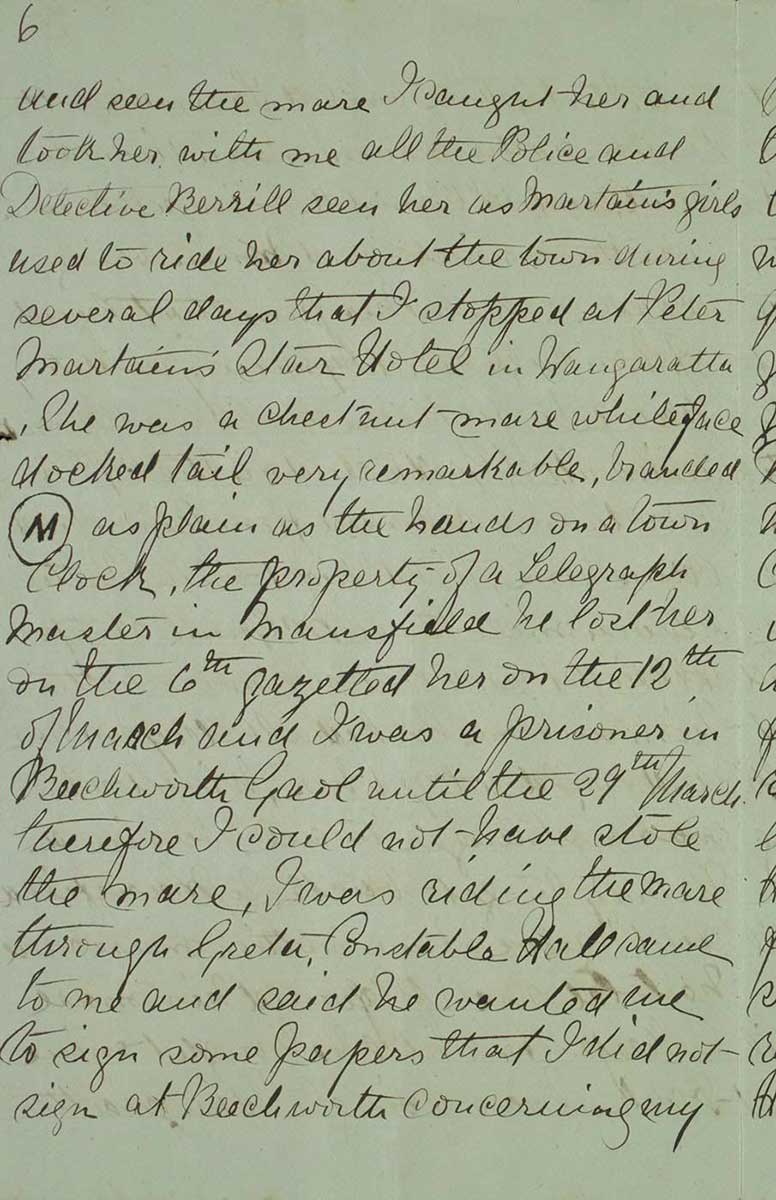 6
and seen the mare I caught her and
took her with me all the Police and
Detective Berrill seen her as Martains girls
used to ride her about the town during
several days that I stopped at Peter
Martains Star Hotel in Wangaratta
, She was a chestnut mare white face
docked tail very remarkable, branded
M as plain as the hands on a town
Clock, the property of a Telegraph
Master in Mansfield he lost her
on the 6th gazetted her on the 12th
of March and I was a prisoner in
Beechworth Gaol until the 29th March
therefore I could not have stole
the mare, I was riding the mare
through Greta, Constable Hall came
to me and said he wanted me
to sign some papers that I did not
sign at Beechworth concerning my